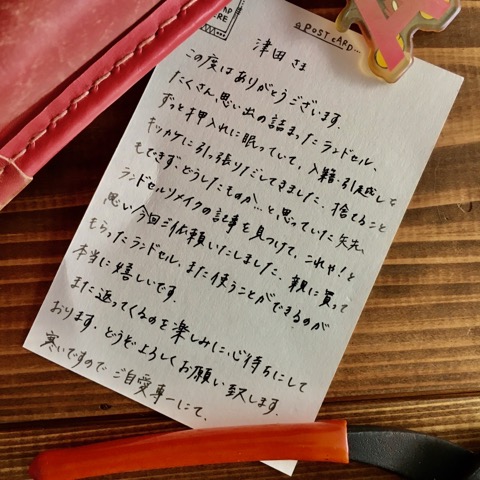 POST CARD...
津田 さま
この度は ありがとうございます.
たくさん.思い出の詰まったランドセル、
ずっと押入れに眠っていて、入籍・引越しを
キッカケに引っ張りだしてきました. 捨てること
もできず、どうしたものか…と思っていた矢先、
ランドセルリメイクの記事を見つけて、これや!と
思い今回ご依頼いたしました. 親に買って
もらったランドセル、また使うことができるのが
本当に嬉しいです.
また返ってくるのを楽しみに、心待ちにして
おります. どうぞよろしくお願い致します.
寒いですので ご自愛専一にて.